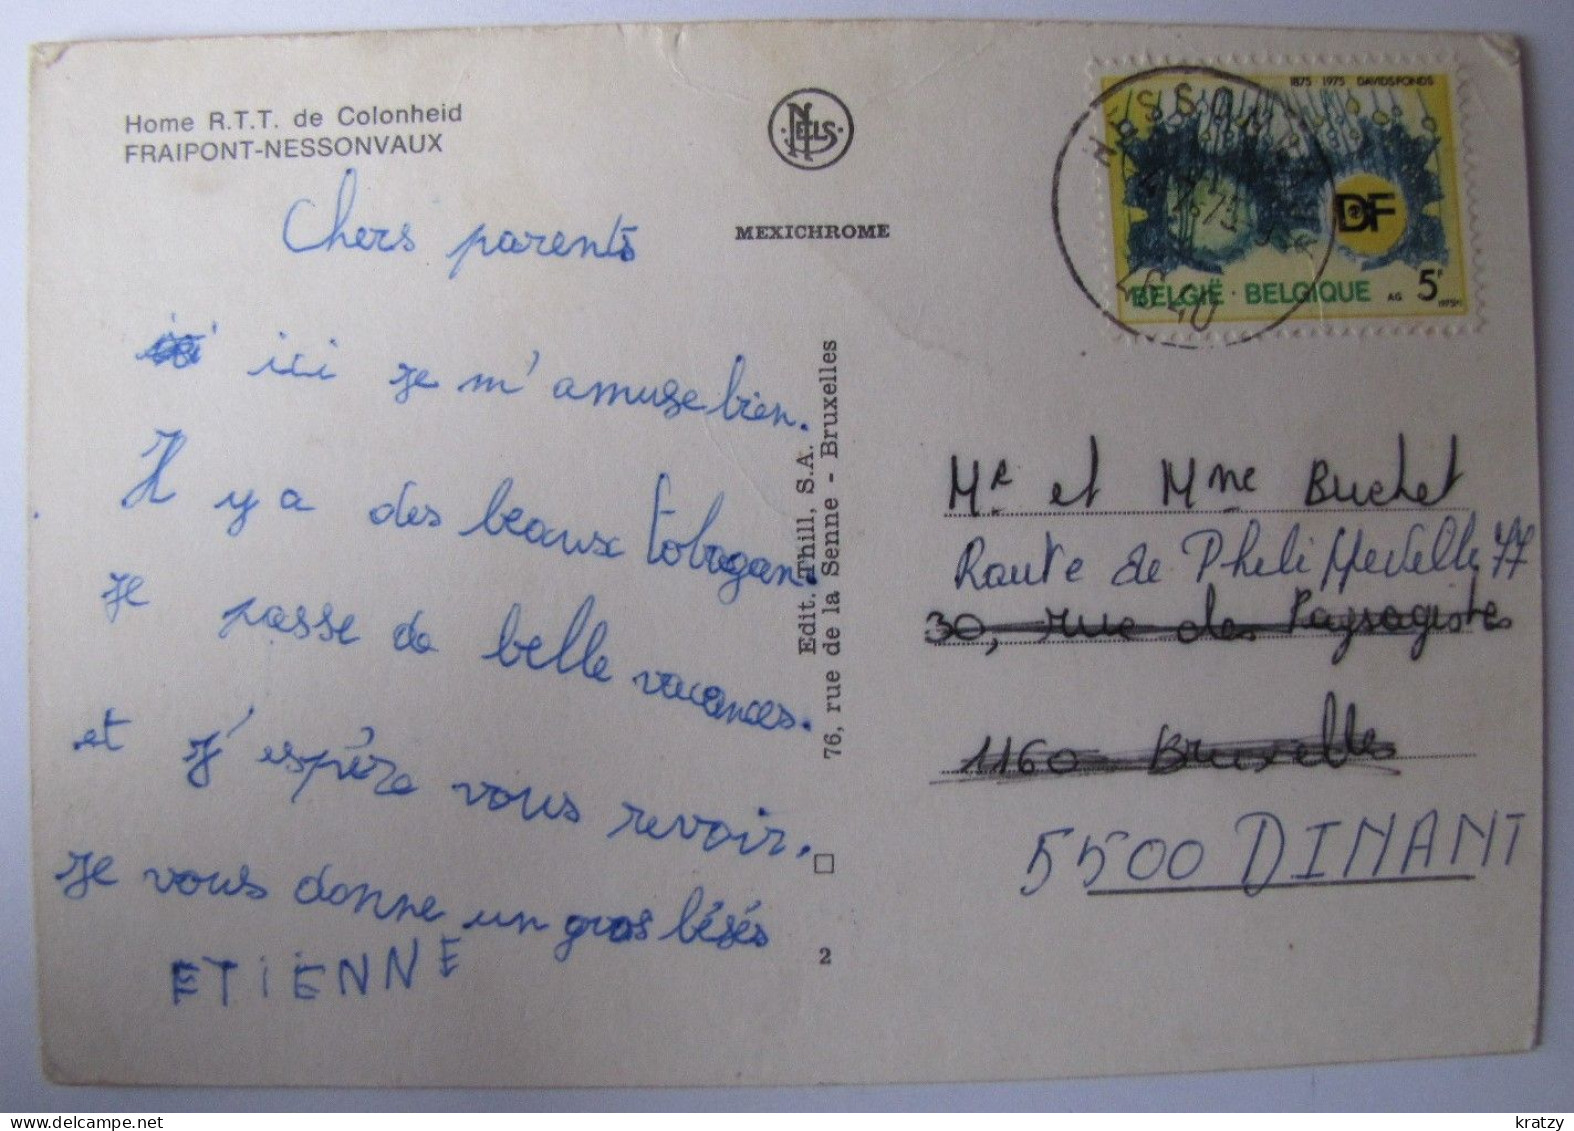 Home R.T.T. de Colonheid
FRAIPONT-NESSONVAUX
NELS
MEXICHROME
Chers parents
ici je m'amuse bien.
Il y a des beaux tobogan.
je passe de belle vacances.
et j'espère vous revoir.
je vous donne un gros bésés
ETIENNE
Edit. Thill, S.A.
76, rue de la Senne - Bruxelles
2
1875 1975 DAVIDSFONDS
DF
BELGIË · BELGIQUE
AG 5F
1975
Mr et Mme Buchet
Route de Phelippeville 77
30, rue des Paysagistes
1160 Bruxelles
5500 DINANT
delcampe.net
kratzy